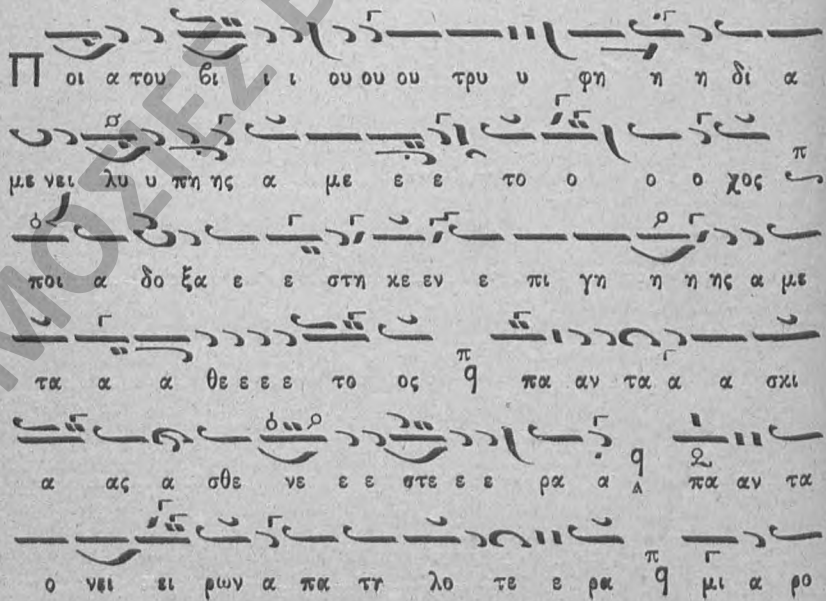 Π οι α του βι ι ι ου ου ου τρυ υ φη η η δι α
με νει λυ υ πη ης α με ε ε το ο ο ο χος π
ποι α δο ξα ε ε στη κε εν ε πι γη η η ης α με
τα α α θε ε ε ε το ος π q πα αν τα α α σκι
α ας α σθε νε ε ε στε ε ε ρα α q πα αν τα
ο νει ει ρων α πα τη λο τε ε ρα π q μι α ρο